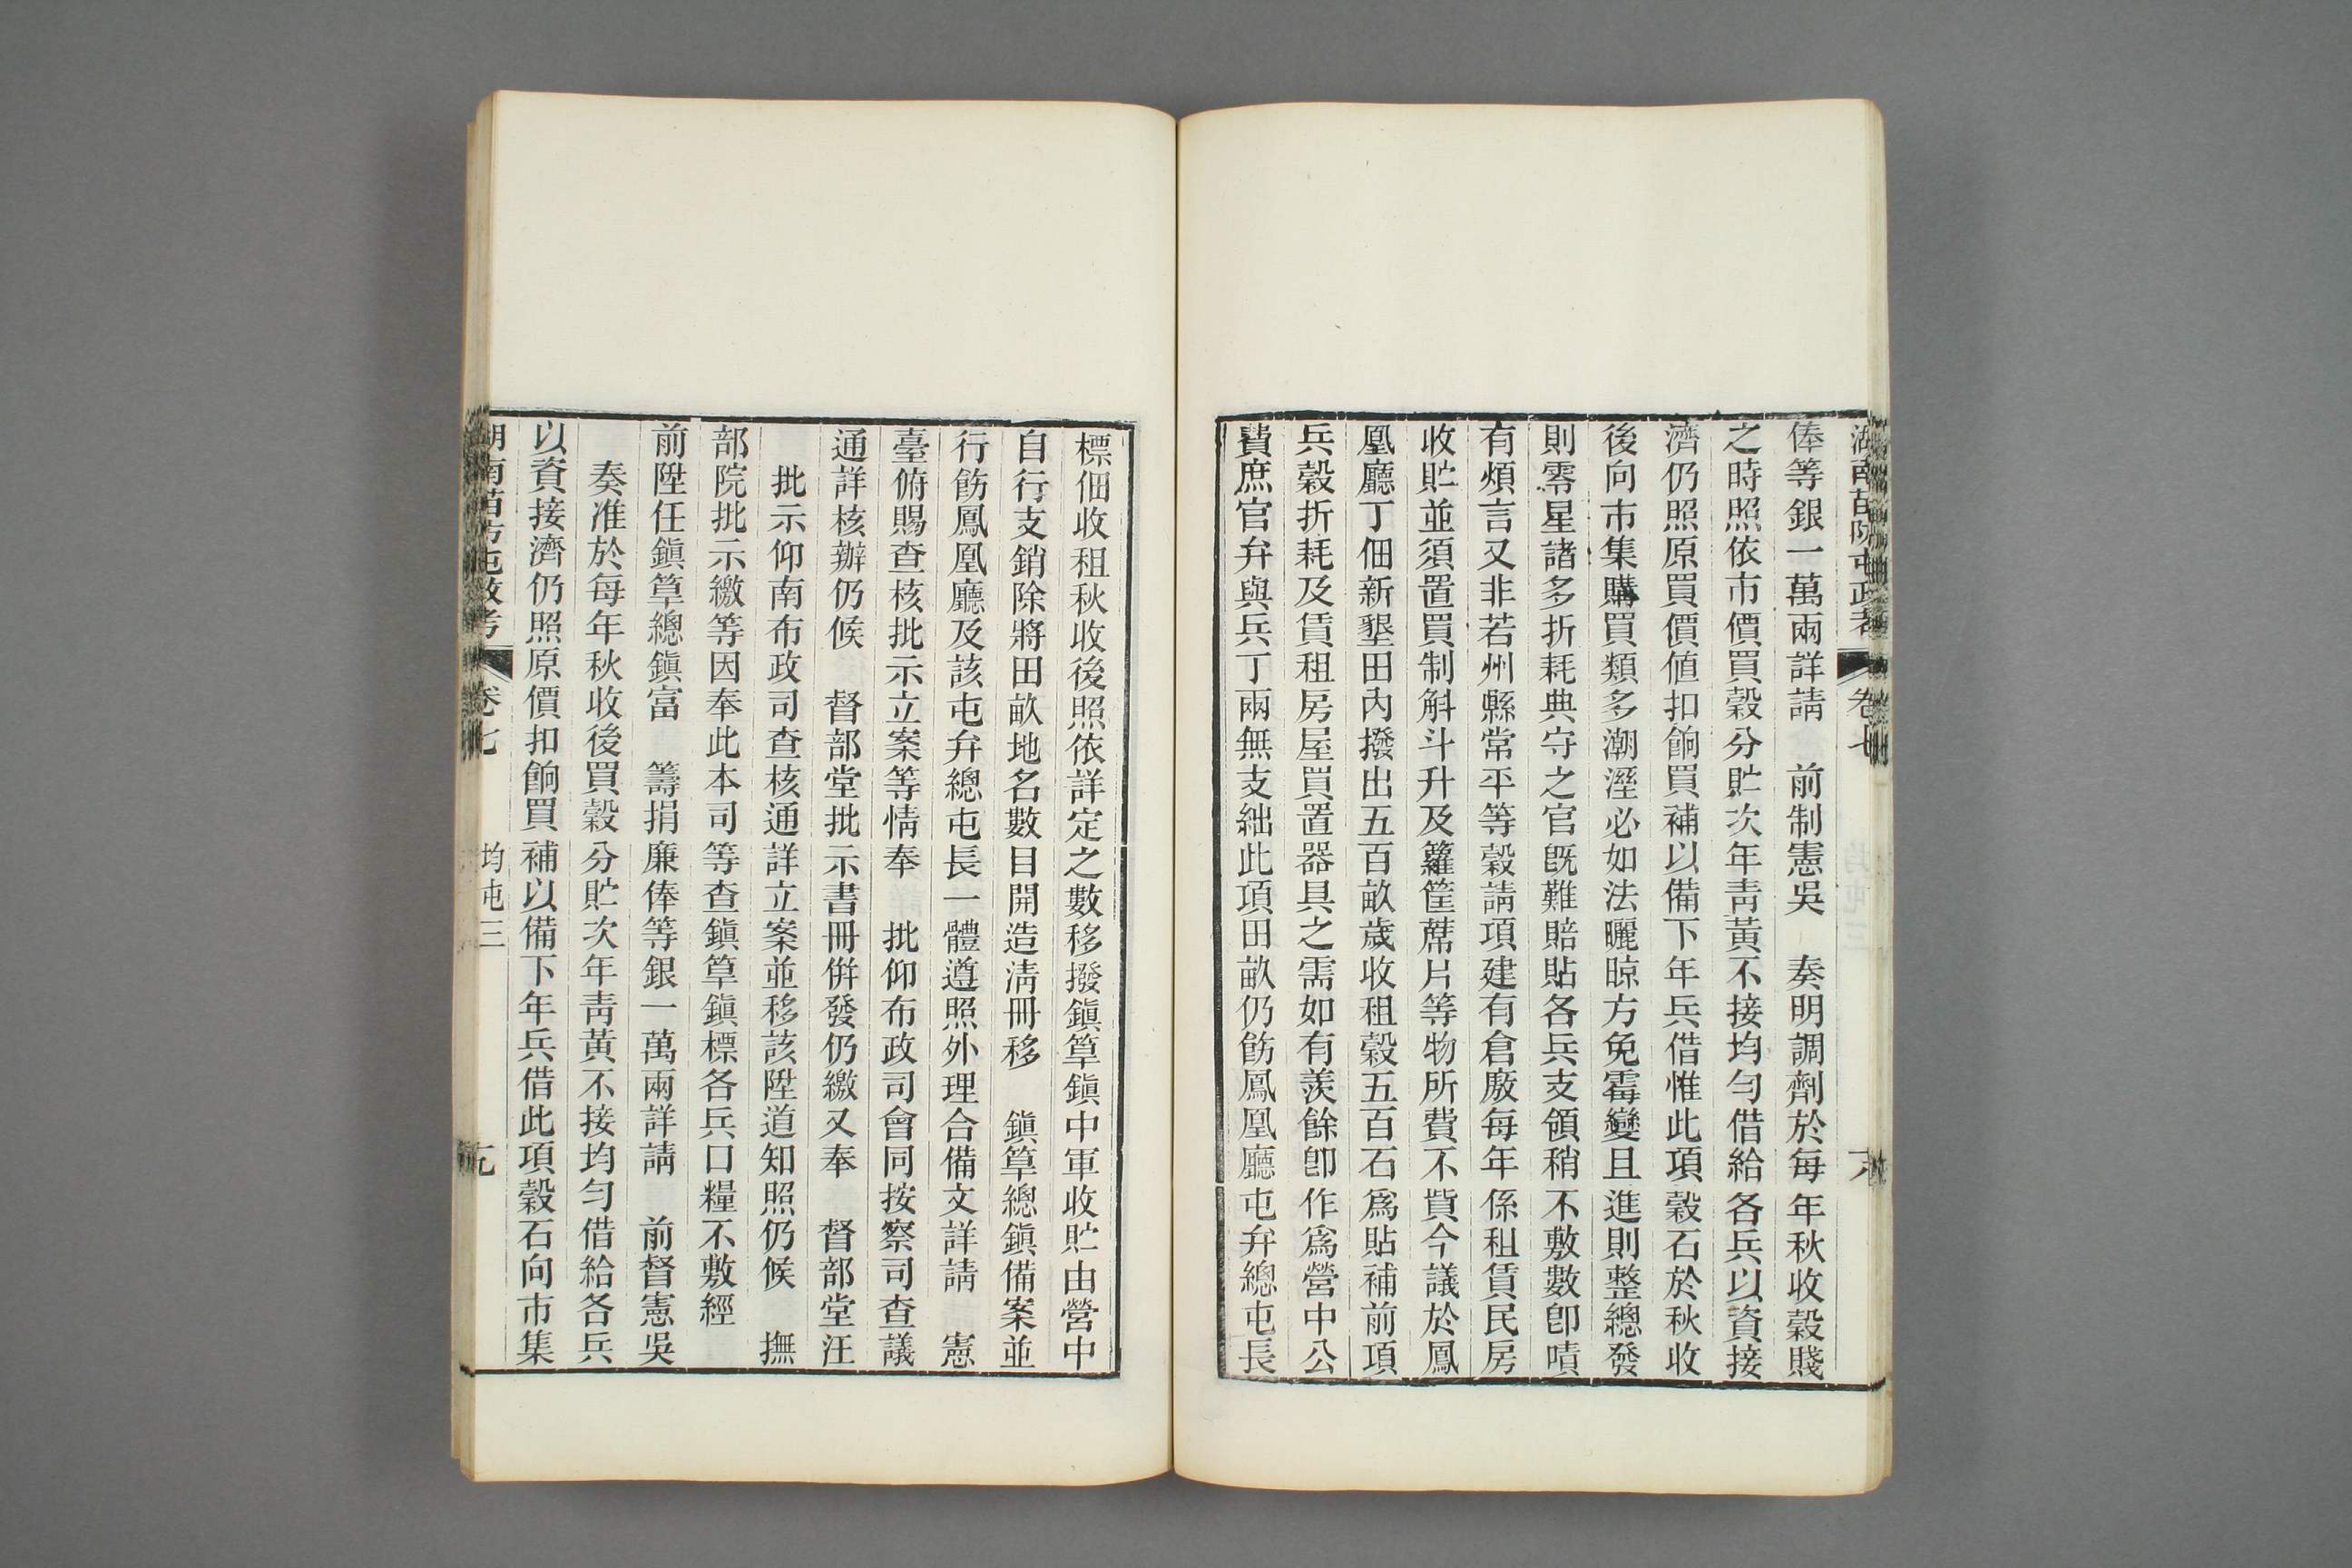 湖南苗防屯政考 卷七
俸等銀一萬兩詳請 前制憲吳 奏明調劑於每年秋收穀賤
之時照依市價買穀分貯次年靑黃不接均勻借給各兵以資接
濟仍照原買價値扣餉買補以備下年兵借惟此項穀石於秋收
後向市集購買類多潮溼必如法曬晾方免霉變且進則整總發
則零星諸多折耗典守之官旣難賠貼各兵支領稍不敷數卽嘖
有煩言又非若州縣常平等穀請項建有倉廒每年係租賃民房
收貯並須置買制斛斗升及籮筐蓆片等物所費不貲今議於鳳
凰廳丁佃新墾田內撥出五百畝歲收租穀五百石爲貼補前項
兵穀折耗及賃租房屋買置器具之需如有羨餘卽作爲營中公
費庶官弁與兵丁兩無支絀此項田畝仍飭鳳凰廳屯弁總屯長
標佃收租秋收後照依詳定之數移撥鎭筸鎭中軍收貯由營中
自行支銷除將田畝地名數目開造淸冊移 鎭筸總鎭備案並
行飭鳳凰廳及該屯弁總屯長一體遵照外理合備文詳請 憲
臺俯賜查核批示立案等情奉 批仰布政司會同按察司查議
通詳核辦仍候 督部堂批示書冊倂發仍繳又奉 督部堂汪
批示仰南布政司查核通詳立案並移該陞道知照仍候 撫
部院批示繳等因奉此本司等查鎭筸鎭標各兵口糧不敷經
前陞任鎭筸總鎭富 籌捐廉俸等銀一萬兩詳請 前督憲吳
奏准於每年秋收後買穀分貯次年靑黃不接均勻借給各兵
以資接濟仍照原價扣餉買補以備下年兵借此項穀石向市集
湖南苗防屯政考 卷七 均屯三